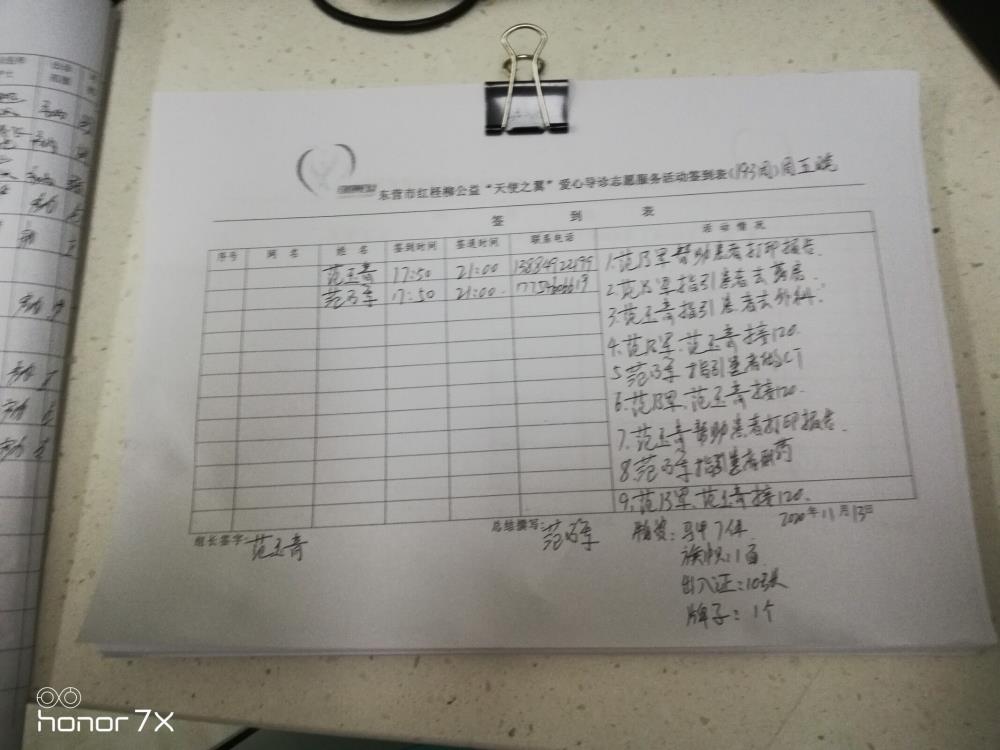 东营市红柽柳公益“天使之翼”爱心导诊志愿服务活动签到表(193周)周五晚
签 到 表
序号 网 名 姓 名 签到时间 签退时间 联系电话 活 动 情 况
范玉奇 17:50 21:00
范乃军 17:50 21:00
1.范乃军帮助患者打印报告.
2.范乃军指引患者去药房.
3.范玉奇指引患者去外科.
4.范乃军.范玉奇接120.
5 范乃军指引患者做CT
6.范乃军.范玉奇接120.
7.范玉奇帮助患者打印报告.
8.范乃军指引患者取药
9.范乃军.范玉奇接120.
组长签字:范玉奇 总结撰写:范乃军 2020年11月13日
物资:马甲7件
旗帜:1面
出入证:10张
牌子:1个
honor 7X